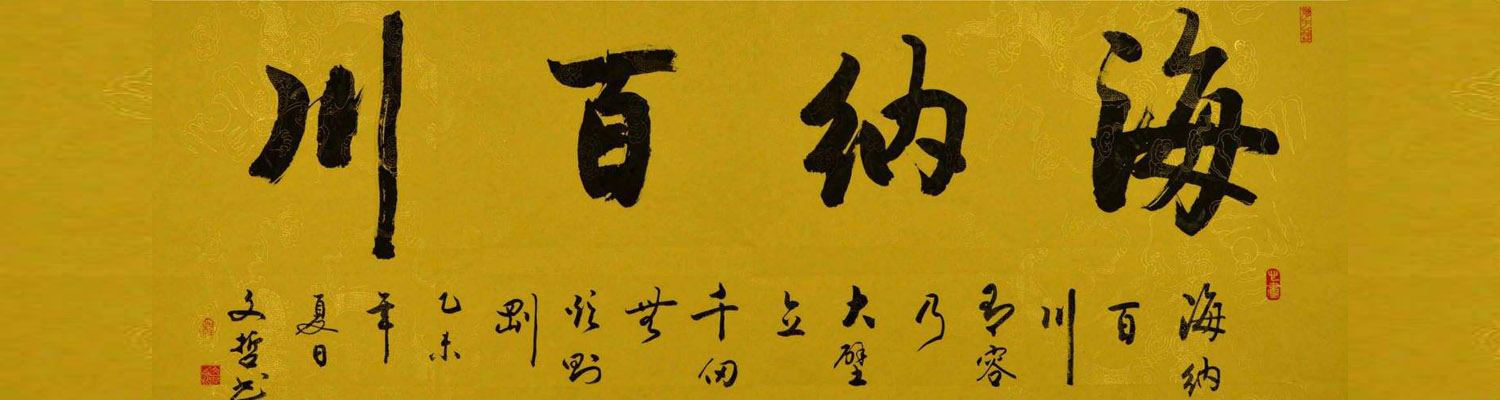 海纳百川
海纳
百
川
有容
乃
大壁
立
千仞
無
欲則
剛
乙未
年
夏日
文哲书